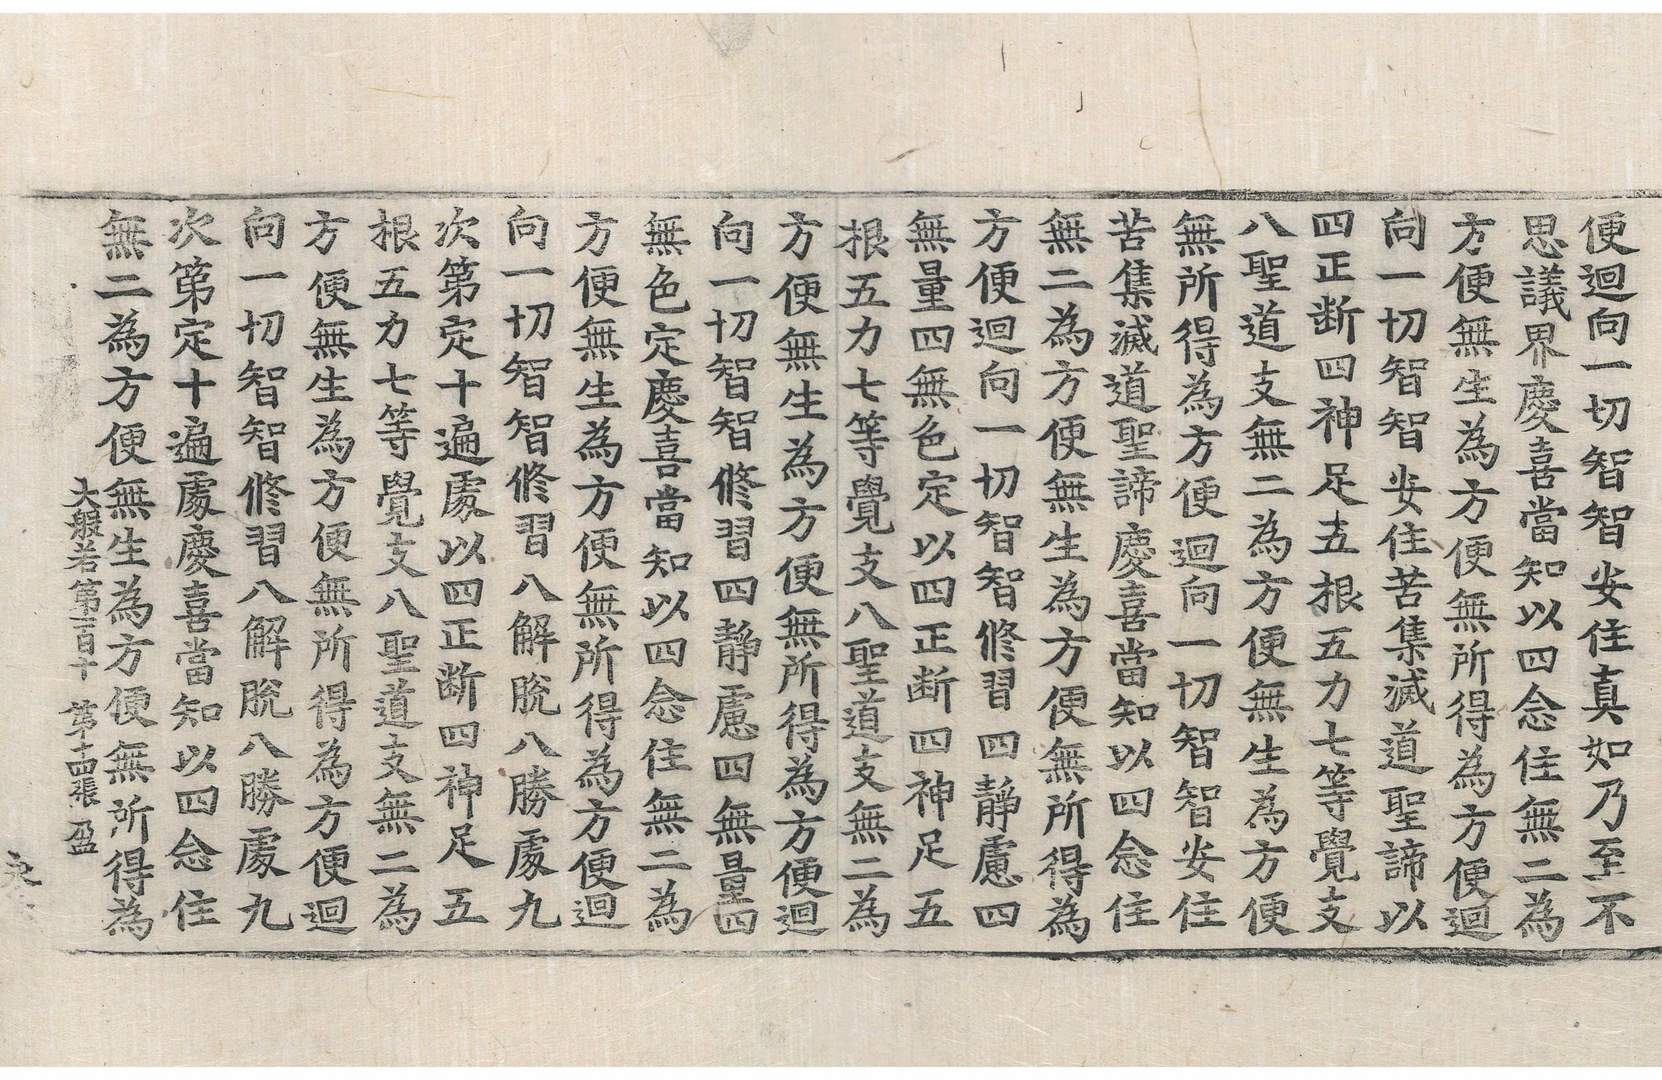 便迴向一切智智安住真如乃至不
思議界慶喜當知以四念住無二為
方便無生為方便無所得為方便迴
向一切智智安住苦集滅道聖諦以
四正断四神足五根五力七等覺支
八聖道支無二為方便無生為方便
無所得為方便迴向一切智智安住
苦集滅道聖諦慶喜當知以四念住
無二為方便無生為方便無所得為
方便迴向一切智智修習四靜慮四
無量四無色定以四正断四神足五
根五力七等覺支八聖道支無二為
方便無生為方便無所得為方便迴
向一切智智修習四靜慮四無量四
無色定慶喜當知以四念住無二為
方便無生為方便無所得為方便迴
向一切智智修習八解脫八勝處九
次第定十遍處以四正断四神足五
根五力七等覺支八聖道支無二為
方便無生為方便無所得為方便迴
向一切智智修習八解脫八勝處九
次第定十遍處慶喜當知以四念住
無二為方便無生為方便無所得為
大般若第一百十　第十四張　盈